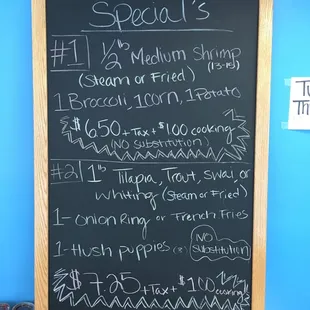 Special's
#1 1/2 lb Medium Shrimp
(13-15)
(Steam or Fried)
1 Broccoli, 1 corn, 1 Potato
$6.50 + Tax + $1.00 cooking
(NO Substitution)
#2 1 lb Tilapia, Trout, Swai, or
Whiting (Steam or Fried)
1- onion Ring or French Fries
1- Hush puppies
NO
Substitution
$7.25 + Tax + $1.00 cooking